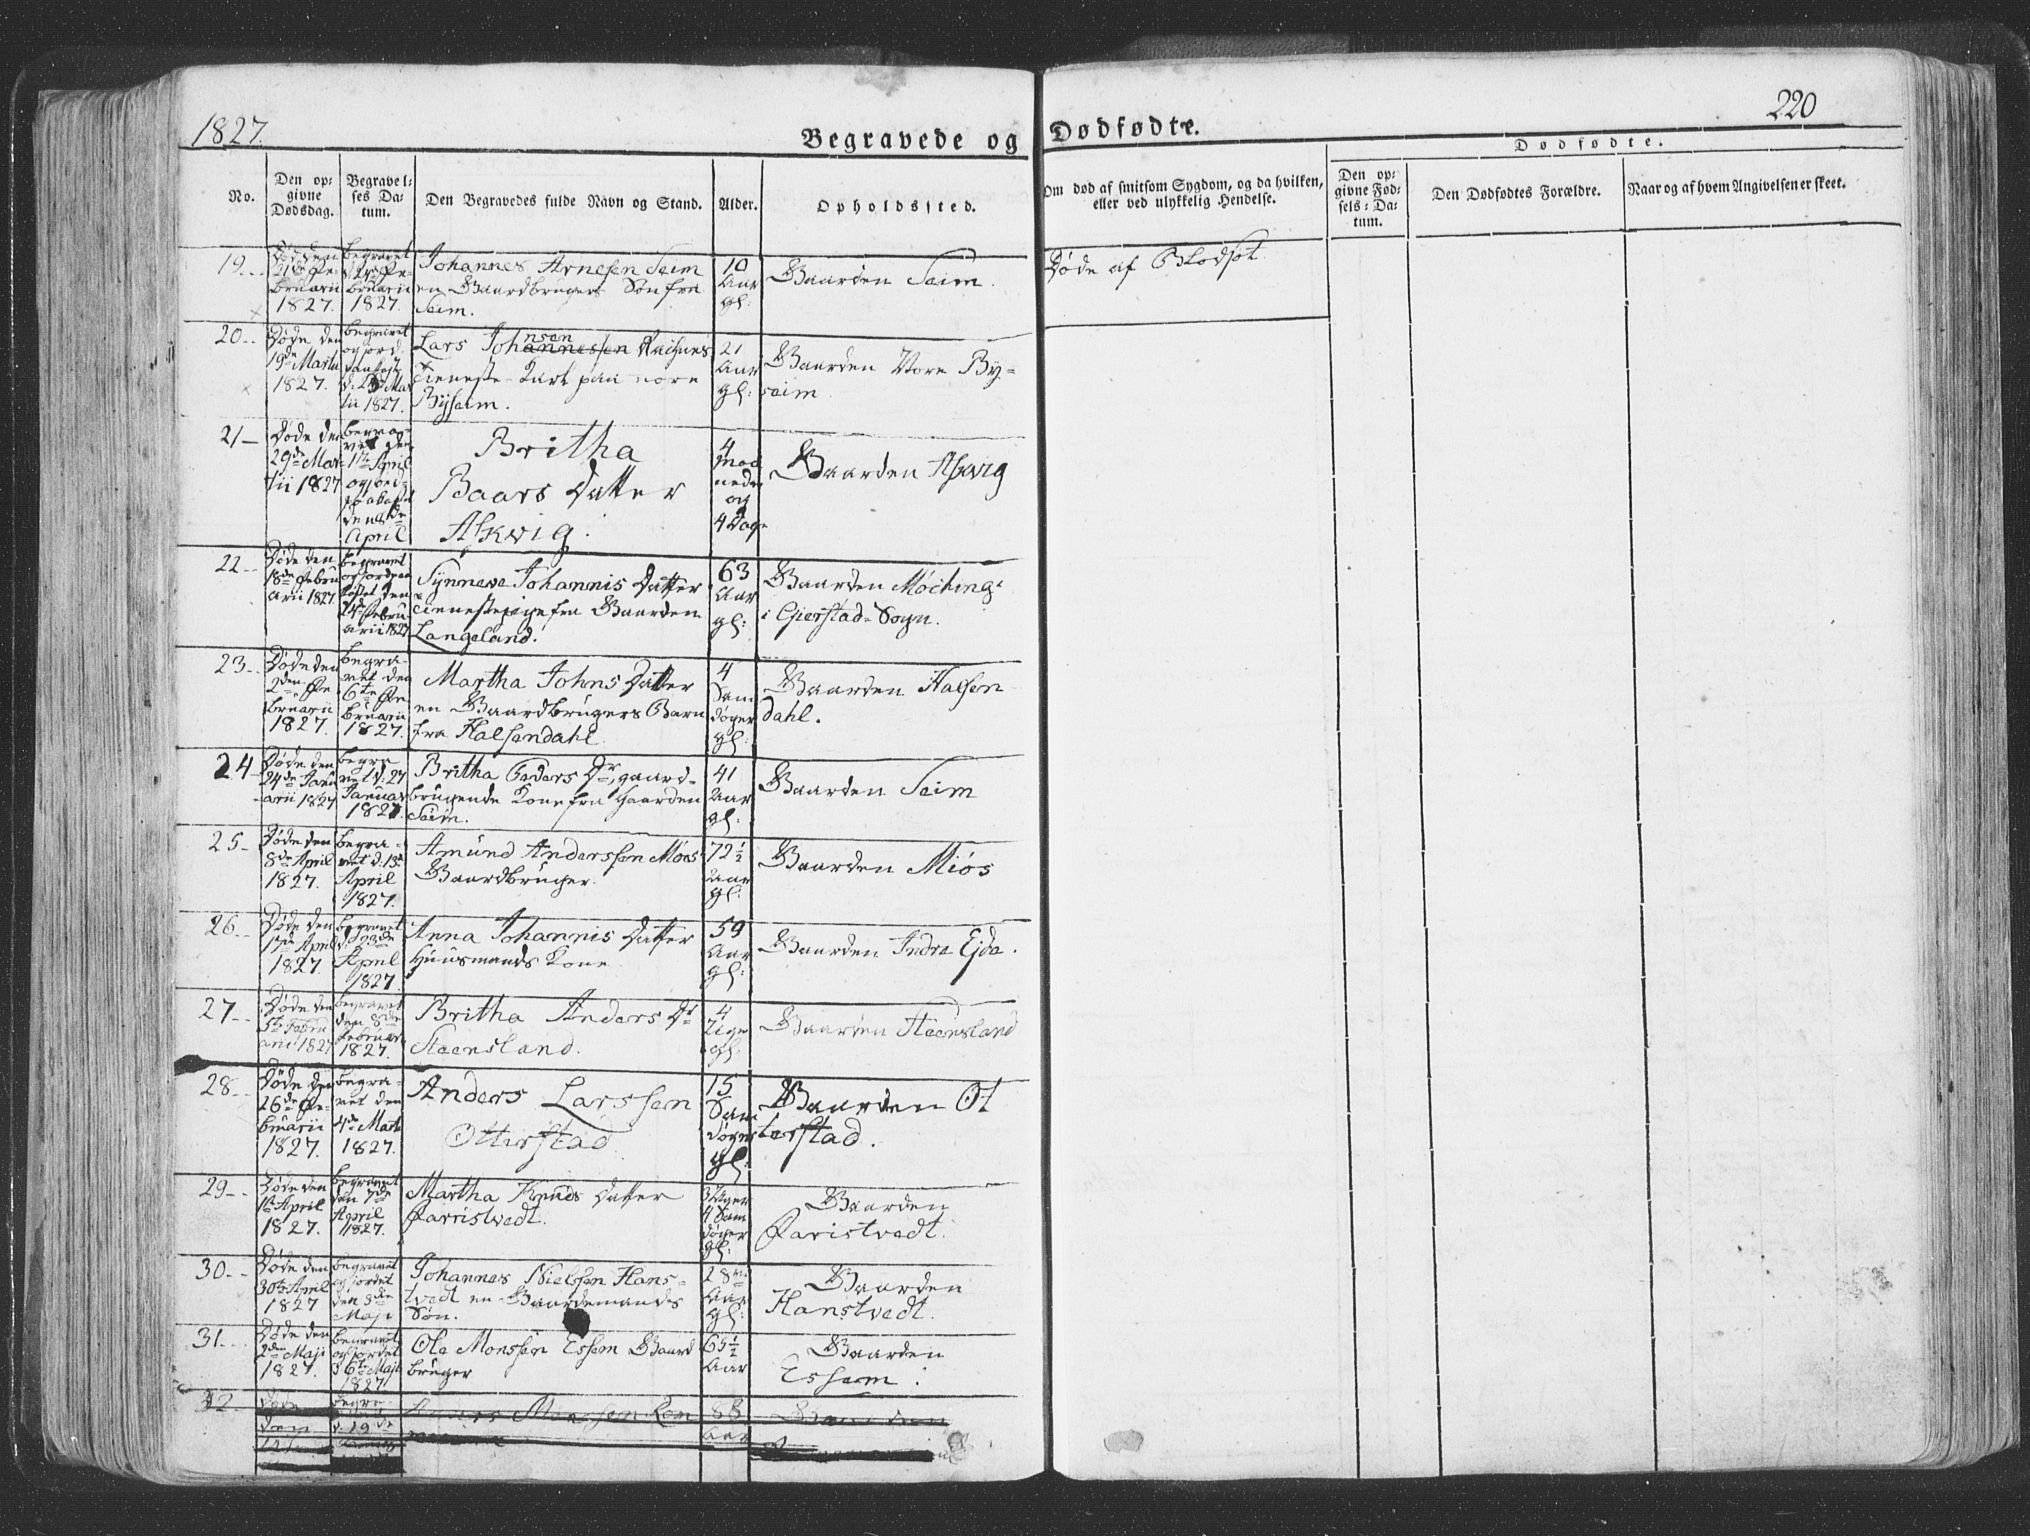 1827.
220
Begravede og Dødfødte.
Dødfødte.
No.
Den op-
givne
Dødsdag.
Begravel-
ses Da-
tum.
Den Begravedes fulde Navn og Stand.
Alder.
Opholdssted.
Om død af smitsom Sygdom, og da hvilken,
eller ved ulykkelig Hendelse.
Den op-
givne Fød-
sels-Da-
tum.
Den Dødfødtes Forældre.
Naar og af hvem Angivelsen er skeet.
19.
Død den
21de Fe-
bruarii
1827.
begravet
Fe-
bruarii
1827.
Johannes Arnesen Seim
en Gaardbrugers Søn fra
Seim.
10
Aar
gl:
Gaarden Seim.
Døde af Blodsot.
20
Døde den
19de Martii
1827.
begravet
og jord-
1827.
Lars Johannessen
nsen
tieneste Karl paa nore
Byseim.
21
Aar
gl:
Gaarden Nore By-
seim
21
Døde den
29de Mar-
tii 1827
begra-
vet den
1te April
og
den 8de
April
Britha
Baars Datter
Askvig.
4
Maa
neder
og
4 Dage
Gaarden Askvig
22
Døde den
18de Febru
arii 1827.
begravet
og jordpaa
kastet den
24de Febru
arii 1827
Synneve Johannis Datter
tienestepige fra Gaarden
Langeland.
63
Aar
gl:
Gaarden Møching
i Gierstad Sogn.
23
Døde den
2den Fe
bruarii
1827.
begra-
vet den
6te Fe
bruarii
1827.
Martha Johns Datter
en Gaardbrugers Barn
fra Halsendahl.
4
Sam
døger
gl:
Gaarden Halsen
dahl.
24
Døde den
24de Janu
arii 1827
begra
vet d: 27
Januar
1827.
Britha Peders Dr, gaard-
brugende Kone fra Gaarden
Seim.
41
Aar
gl:
Gaarden Seim
25
Døde den
8de April
1827.
begra-
vet d. 13de
April
1827.
Amund Anderssen Møes
Gaardbruger.
72½
Aar
gl:
Gaarden Miøs
26
Døde den
17de April
1827.
begravet
d. 23de
April
1827.
Anna Johannis Datter
Huusmands Kone
59
Aar
gl:
Gaarden Indre Ejde.
27
Døde den
5te Febru
arii 1827
begravet
den 8de
Februar
1827.
Britha Anders Dr
Steensland.
4
Uger
gl:
Gaarden Steensland
28
Døde den
26de Fe-
bruarii
1827.
begra-
vet den
4de Marti
1827.
Anders Larssen
Otterstad
15
Sam
døgns
gl:
Gaarden Ot
terstad.
29
Døde den
1te April
1827.
begravet
den 7de
April
1827.
Martha Knuds Datter
Farristvedt.
3 Uger
4 Sam
døger
gl:
Gaarden
Faristvedt.
30
Døde den
30te April
1827
begravet
og jordet
den 3die
Maji
Johannes Nielssen Hans-
tvedt en Gaardemandes
Søn.
28
Aar
gl:
Gaarden
Hanstvedt.
31.
Døde den
2den Maji
1827.
begravet
og jordet
d 6te Maji
1827
Ole Monssen Essem Gaard
bruger
65½
Aar
Gaarden
Essem.
32
Døde
den
begra
d. 19de
Monssen
88
Aar
Gaarden